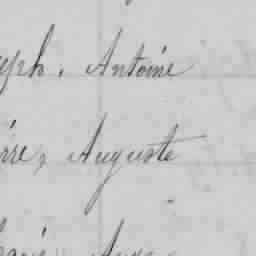 eph, Antoine
rre, Auguste